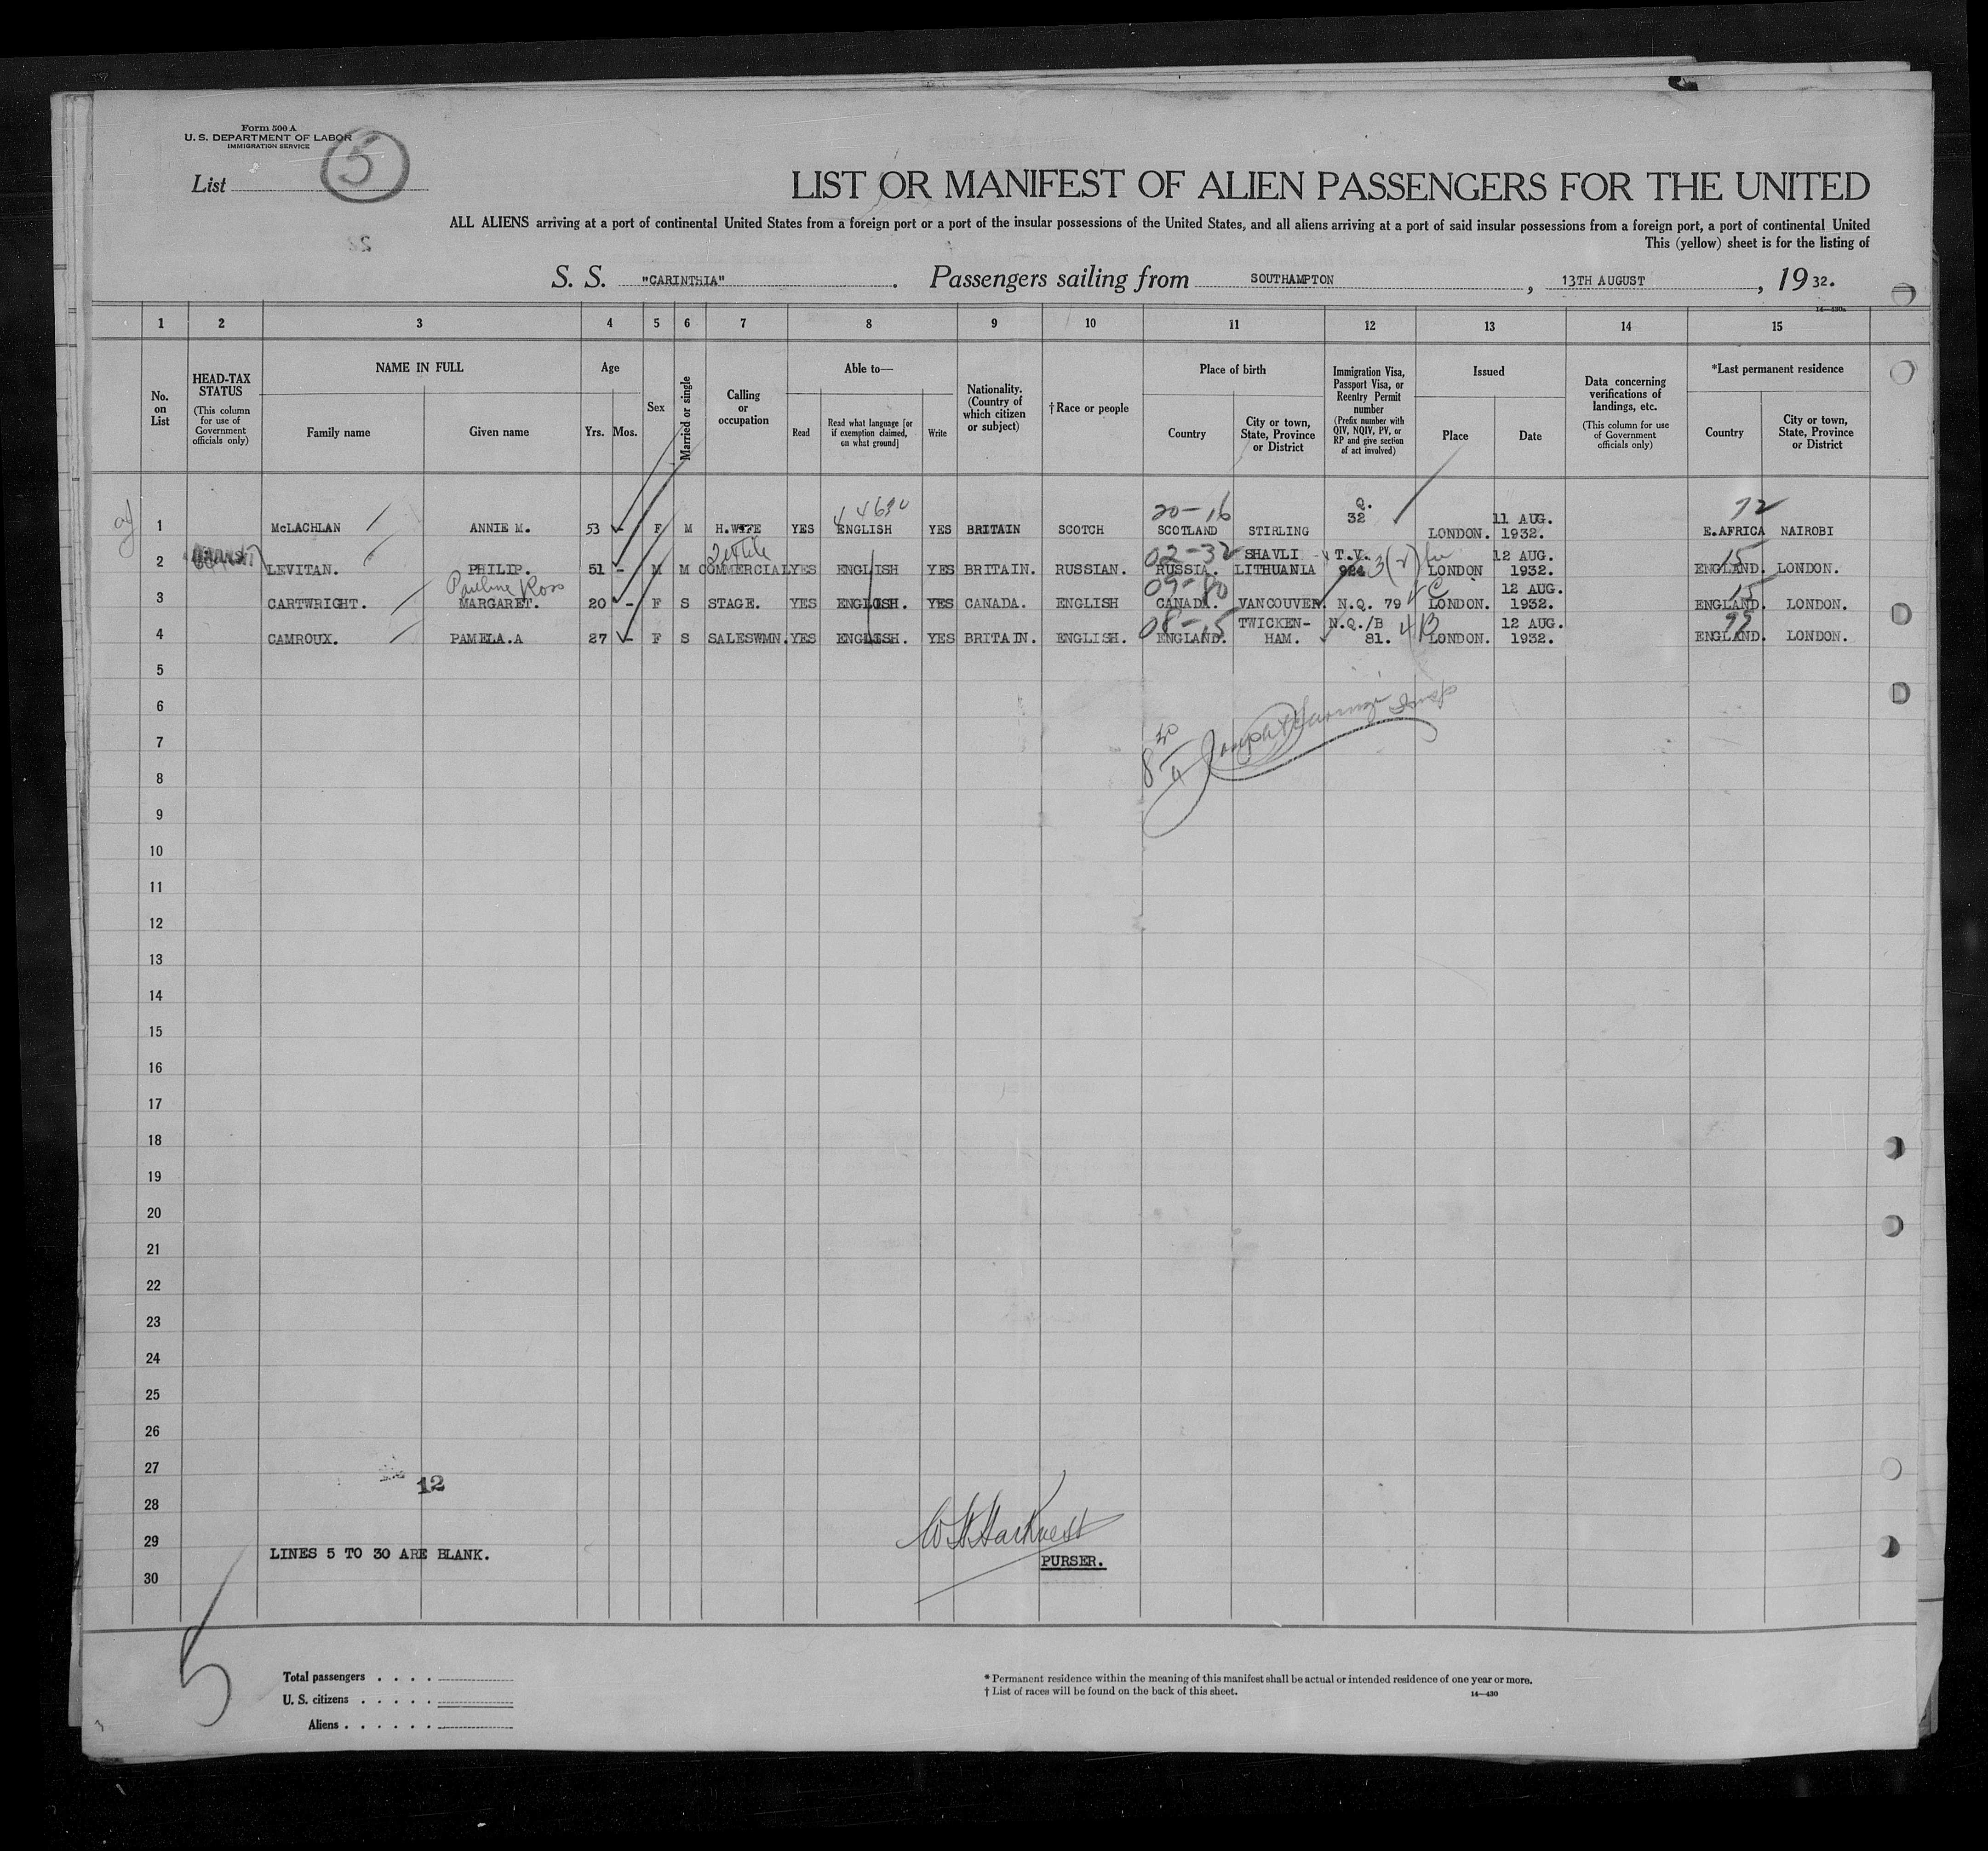 Form 500 A
U. S. DEPARTMENT OF LABOR
IMMIGRATION SERVICE
List 5
LIST OR MANIFEST OF ALIEN PASSENGERS FOR THE UNITED
ALL ALIENS arriving at a port of continental United States from a foreign port or a port of the insular possessions of the United States, and all aliens arriving at a port of said insular possessions from a foreign port, a port of continental United
This (yellow) sheet is for the listing of
S. S. "CARINTHIA". Passengers sailing from SOUTHAMPTON, 13TH AUGUST, 1932.
14—430a
1 2 3 4 5 6 7 8 9 10 11 12 13 14 15
No. on List
HEAD-TAX STATUS (This column for use of Government officials only)
NAME IN FULL
Family name Given name
Age
Yrs. Mos.
Sex
Married or single
Calling or occupation
Able to—
Read Read what language [or if exemption claimed, on what ground] Write
Nationality. (Country of which citizen or subject)
†Race or people
Place of birth
Country City or town, State, Province or District
Immigration Visa, Passport Visa, or Reentry Permit number (Prefix number with QIV, NQIV, PV, or RP and give section of act involved)
Issued
Place Date
Data concerning verifications of landings, etc. (This column for use of Government officials only)
*Last permanent residence
Country City or town, State, Province or District
20-16 72
1 McLACHLAN ANNIE M. 53 - F M H.WIFE YES ENGLISH YES BRITAIN SCOTCH SCOTLAND STIRLING Q. 32 LONDON. 11 AUG. 1932. E.AFRICA NAIROBI
Textile 02-32 3(2) 15
2 LEVITAN. PHILIP. 51 - M M COMMERCIAL YES ENGLISH YES BRITAIN. RUSSIAN. RUSSIA. SHAVLI LITHUANIA T.V. 924 LONDON 12 AUG. 1932. ENGLAND. LONDON.
Pauline Ross 09-80 4C 15
3 CARTWRIGHT. MARGARET. 20 - F S STAGE. YES ENGLISH. YES CANADA. ENGLISH CANADA. VANCOUVER. N.Q. 79 LONDON. 12 AUG. 1932. ENGLAND. LONDON.
08-15 4B
4 CAMROUX. PAMELA.A 27 - F S SALESWMN. YES ENGLISH. YES BRITAIN. ENGLISH. ENGLAND. TWICKEN-HAM. N.Q./B 81. LONDON. 12 AUG. 1932. ENGLAND. LONDON.
5
6
7
8
9
10
11
12
13
14
15
16
17
18
19
20
21
22
23
24
25
26
27
12
28
29
LINES 5 TO 30 ARE BLANK.
PURSER.
30
5
Total passengers
U. S. citizens
Aliens
* Permanent residence within the meaning of this manifest shall be actual or intended residence of one year or more.
† List of races will be found on the back of this sheet.
14—430